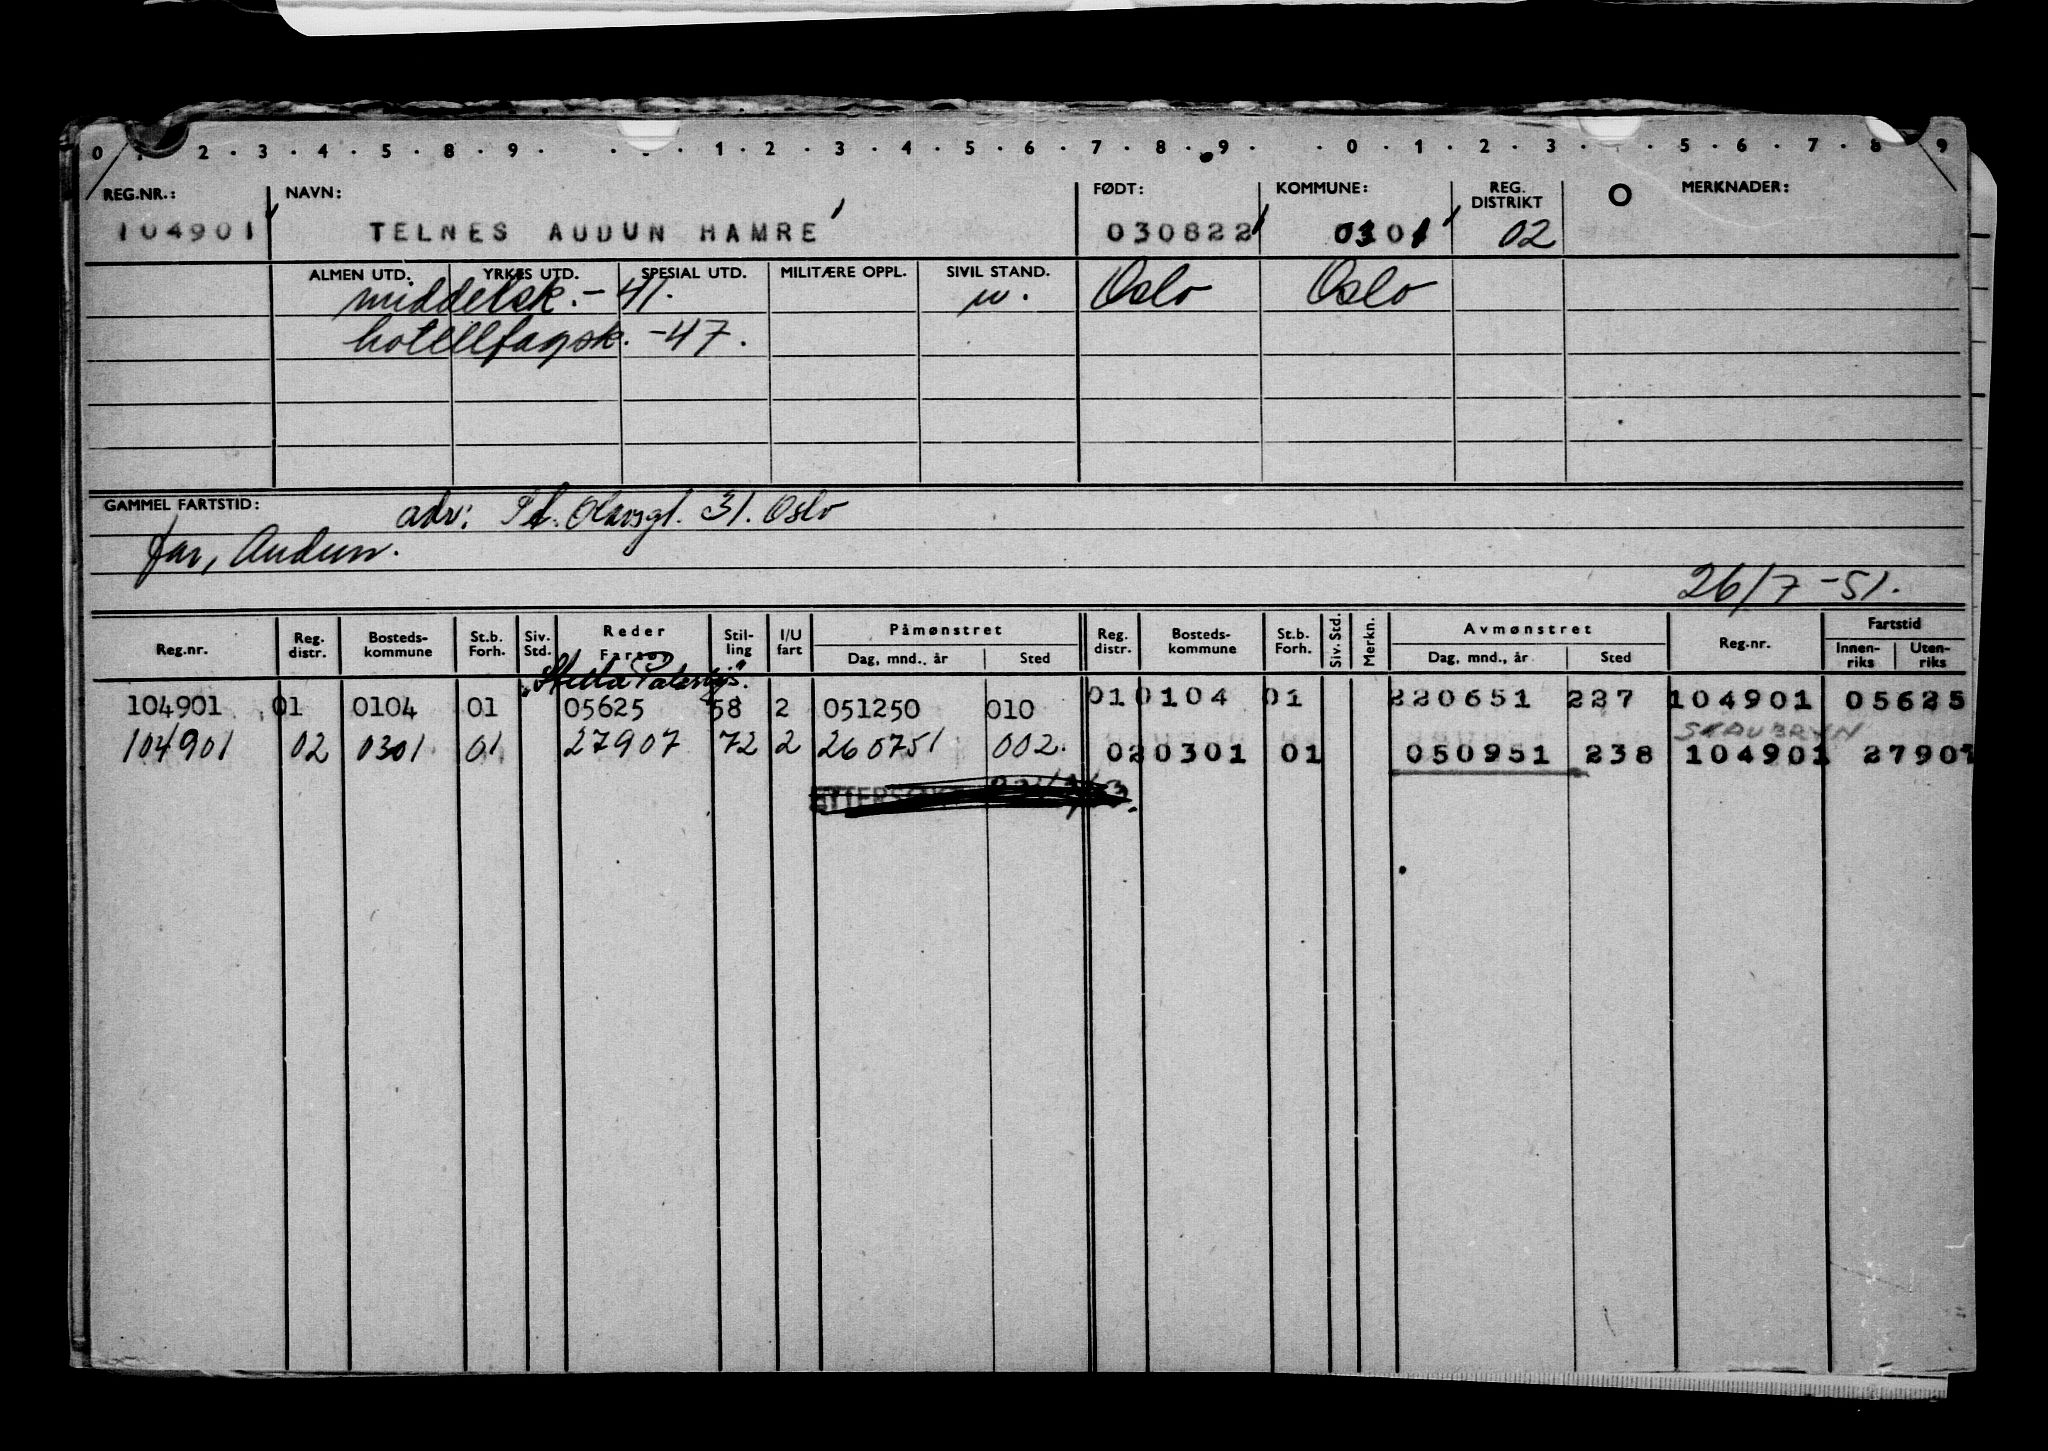 0 1 . 2 . 3 . 4 . 5 . 8 . 9 . . . 1 . 2 . 3 . 4 . 5 . 6 . 7 . 8 . 9 . . 0 . 1 . 2 . 3 . 5 . 6 . 7 . 8 9
REG.NR.: NAVN: FØDT: KOMMUNE: REG. DISTRIKT O MERKNADER:
104901 TELNES AUDUN HAMRE 030822 0301 02
ALMEN UTD. YRKES UTD. SPESIAL UTD. MILITÆRE OPPL. SIVIL STAND.
middelsk. - 41. u. Oslo Oslo
hotellfagsk. - 47.
GAMMEL FARTSTID: adr: St. Olavsgt. 31. Oslo
far, Audun.
26/7 - 51.
Reg.nr. Reg. distr. Bosteds- kommune St.b. Forh. Siv. Std. Reder Fartøy Stil- ling I/U fart Påmønstret Dag, mnd., år Sted Reg. distr. Bosteds- kommune St.b. Forh. Siv. Std. Merkn. Avmønstret Dag, mnd., år Sted Reg.nr. Fartstid Innen- riks Uten- riks
"Stella Polaris".
104901 01 0104 01 05625 58 2 051250 010 01 0104 01 220651 227 104901 05625
SKAUBRYN
104901 02 0301 01 27907 72 2 260751 002. 02 0301 01 050951 238 104901 27907